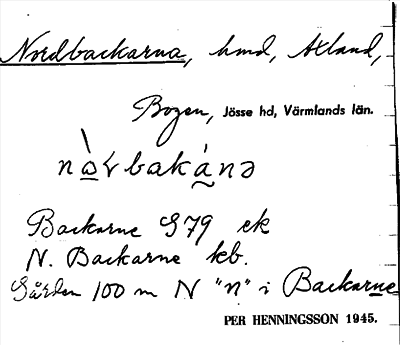 Nordbackarna, hmd, Ålland,
Bogen, Jösse hd, Värmlands län.
Backarne G79 ek
N. Backarne kb.
Gården 100 m N "n" i Backarne
PER HENNINGSSON 1945.